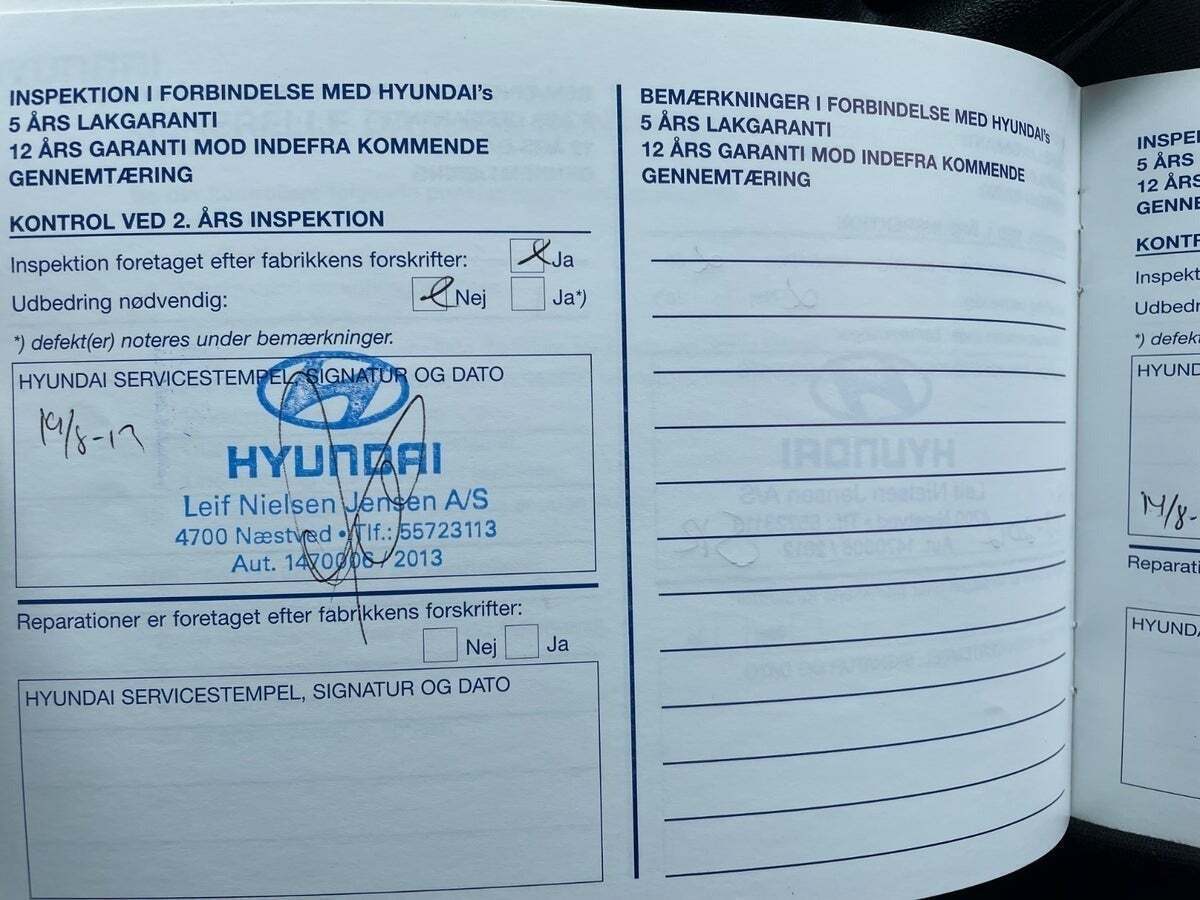 INSPEKTION I FORBINDELSE MED HYUNDAI's
5 ÅRS LAKGARANTI
12 ÅRS GARANTI MOD INDEFRA KOMMENDE
GENNEMTÆRING
KONTROL VED 2. ÅRS INSPEKTION
Inspektion foretaget efter fabrikkens forskrifter: Ja
Udbedring nødvendig: Nej Ja*)
*) defekt(er) noteres under bemærkninger.
HYUNDAI SERVICESTEMPEL, SIGNATUR OG DATO
14/8-13
HYUNDAI
Leif Nielsen Jensen A/S
4700 Næstved • Tlf.: 55723113
Aut. 1470006 / 2013
Reparationer er foretaget efter fabrikkens forskrifter:
Nej Ja
HYUNDAI SERVICESTEMPEL, SIGNATUR OG DATO
BEMÆRKNINGER I FORBINDELSE MED HYUNDAI's
5 ÅRS LAKGARANTI
12 ÅRS GARANTI MOD INDEFRA KOMMENDE
GENNEMTÆRING
INSPE
5 ÅRS
12 ÅRS
GENNE
KONTR
Inspekt
Udbedr
*) defekt
HYUND
14/8-
Reparati
HYUNDA